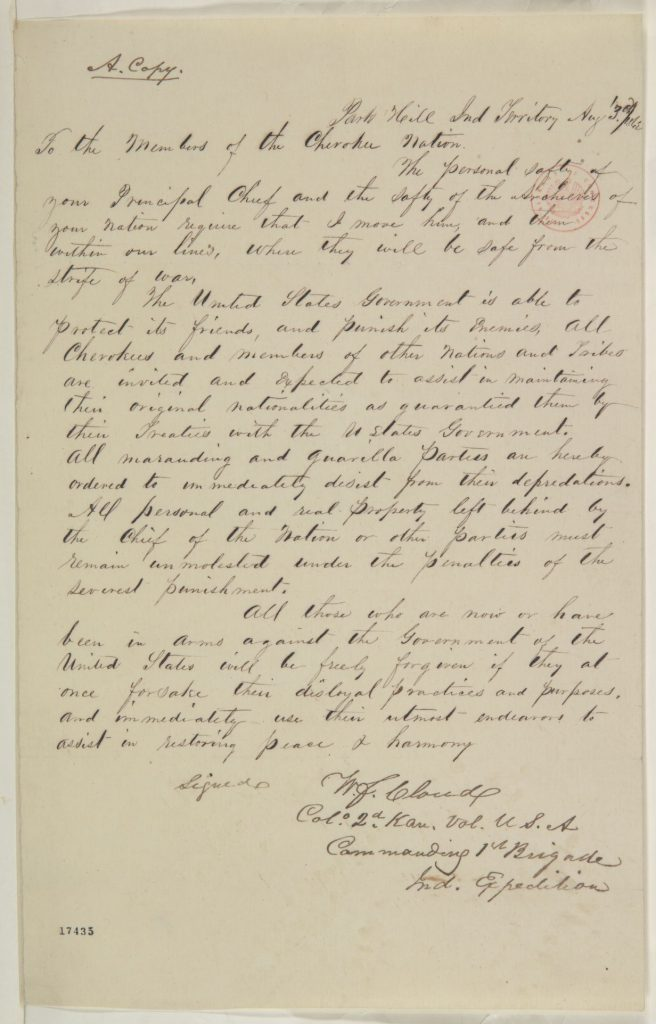 A. Copy.
Park Hill Ind Territory Aug 3rd
To the Members of the Cherokee Nation.
The personal safty of
your Principal Chief and the safty of the Archieves of
your Nation require that I move him, and them
within our lines, where they will be safe from the
strife of war,
The United States Government is able to
protect its friends, and punish its Enemies, All
Cherokees and members of other Nations and Tribes
are invited and Expected to assist in maintaining
their original nationalities as guarantied them by
their Treaties with the U States Government.
All marauding and guarilla Parties are hereby
ordered to immediately disist from their depredations.
All personal and real property left behind by
the Chief of the Nation or other parties must
remain unmolested under the penalties of the
severest punishment.
All those who are now or have
been in arms against the Government of the
United States will be freely forgiven if they at
once forsake their disloyal practices and purposes.
and immediately use their utmost endeavors to
assist in restoring peace & harmony
Signed
W. F. Cloud
Colo 2d Kan. Vol. U. S. A
Commanding 1st Brigade
Ind. Epedition
17435